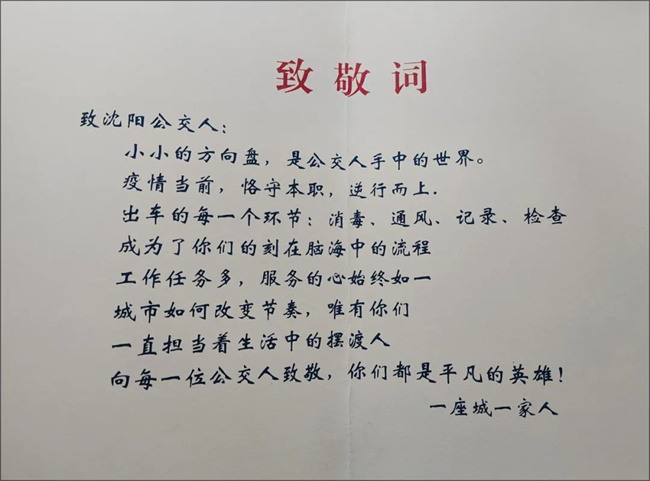 致敬词
致沈阳公交人：
小小的方向盘，是公交人手中的世界。
疫情当前，恪守本职，逆行而上.
出车的每一个环节：消毒、通风、记录、检查
成为了你们的刻在脑海中的流程
工作任务多，服务的心始终如一
城市如何改变节奏，唯有你们
一直担当着生活中的摆渡人
向每一位公交人致敬，你们都是平凡的英雄！
一座城一家人